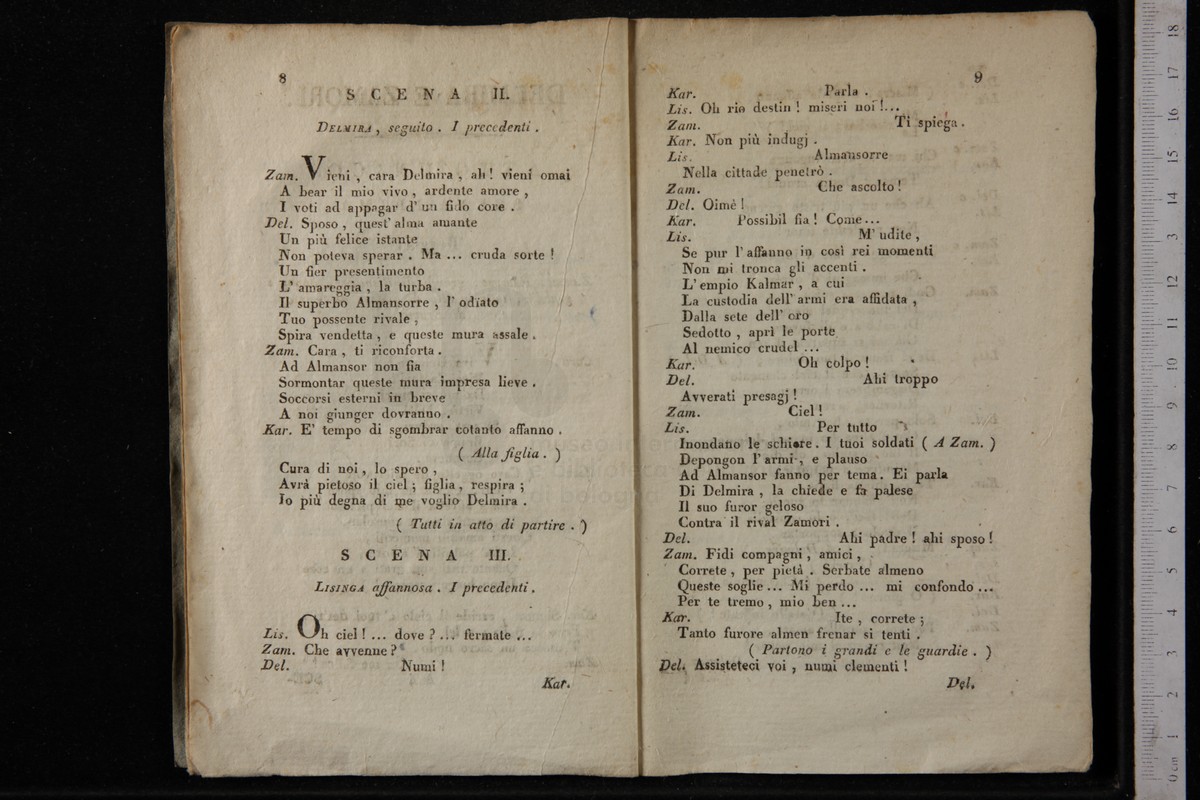 8
SCENA II.
DELMIRA, seguito. I precedenti.
Zam. Vieni, cara Delmira, ah! vieni omai
A bear il mio vivo, ardente amore,
I voti ad appagar d' un fido core.
Del. Sposo, quest' alma amante
Un più felice istante
Non poteva sperar. Ma ... cruda sorte!
Un fier presentimento
L' amareggia, la turba.
Il superbo Almansorre, l' odiato
Tuo possente rivale,
Spira vendetta, e queste mura assale.
Zam. Cara, ti riconforta.
Ad Almansor non fia
Sormontar queste mura impresa lieve.
Soccorsi esterni in breve
A noi giunger dovranno.
Kar. E' tempo di sgombrar cotanto affanno.
( Alla figlia. )
Cura di noi, lo spero,
Avrà pietoso il ciel; figlia, respira;
Io più degna di me voglio Delmira.
( Tutti in atto di partire. )
SCENA III.
LISINGA affannosa. I precedenti.
Lis. Oh ciel! ... dove? ... fermate ...
Zam. Che avvenne?
Del. Numi!
Kar.
9
Kar. Parla.
Lis. Oh rio destin! miseri noi!...
Zam. Ti spiega.
Kar. Non più indugj.
Lis. Almansorre
Nella cittade penetrò.
Zam. Che ascolto!
Del. Oimè!
Kar. Possibil fia! Come...
Lis. M' udite,
Se pur l' affanno in così rei momenti
Non mi tronca gli accenti.
L' empio Kalmar, a cui
La custodia dell' armi era affidata,
Dalla sete dell' oro
Sedotto, aprì le porte
Al nemico crudel ...
Kar. Oh colpo!
Del. Ahi troppo
Avverati presagj!
Zam. Ciel!
Lis. Per tutto
Inondano le schiere. I tuoi soldati ( A Zam. )
Depongon l' armi, e plauso
Ad Almansor fanno per tema. Ei parla
Di Delmira, la chiede e fa palese
Il suo furor geloso
Contra il rival Zamori.
Del. Ahi padre! ahi sposo!
Zam. Fidi compagni, amici,
Correte, per pietà. Serbate almeno
Queste soglie ... Mi perdo ... mi confondo ...
Per te tremo, mio ben ...
Kar. Ite, correte;
Tanto furore almen frenar si tenti.
( Partono i grandi e le guardie. )
Del. Assisteteci voi, numi clementi!
Del.
0 cm 1 2 3 4 5 6 7 8 9 10 11 12 13 14 15 16 17 18